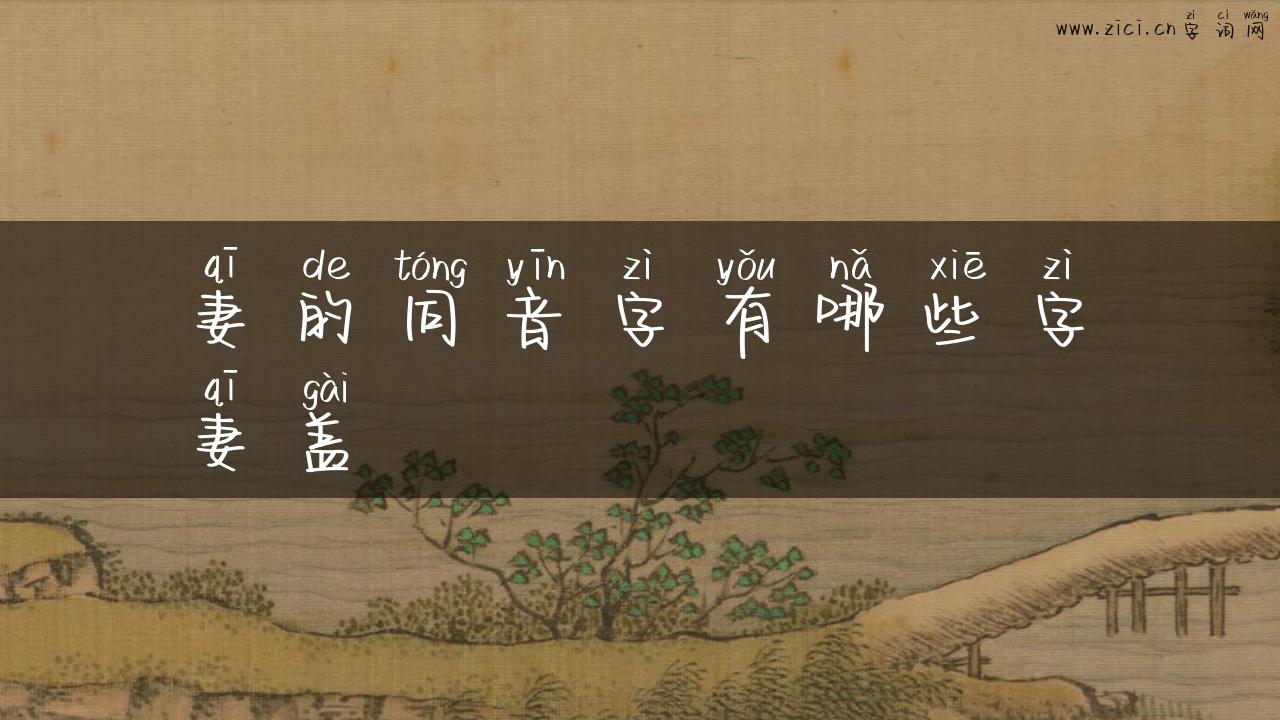 zì cí wǎng
www.zici.cn 字词网
qī de tóng yīn zì yǒu nǎ xiē zì
妻的同音字有哪些字
qī gài
妻盖